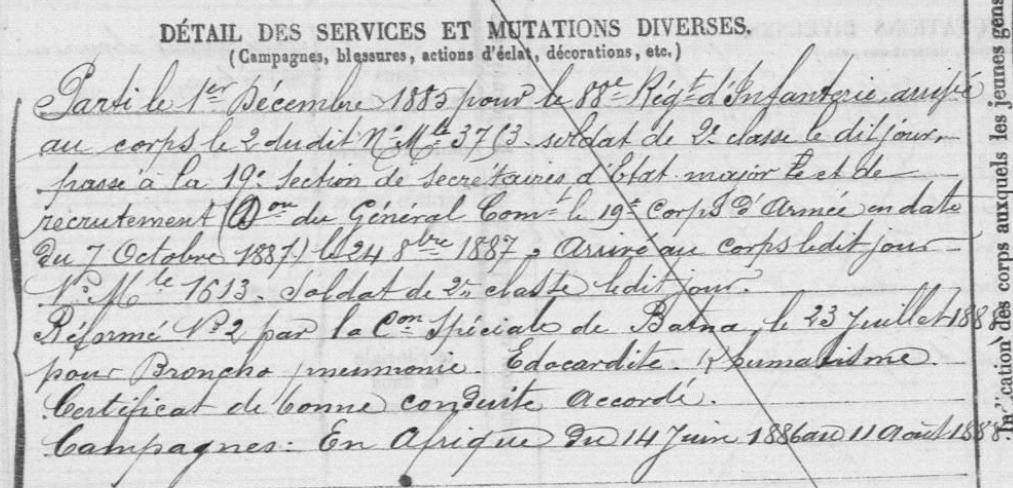 DÉTAIL DES SERVICES ET MUTATIONS DIVERSES,
(Campagnes, blessures, actions d'éclat, décorations, etc.)
Parti le 1er Décembre 1885 pour le 88e Régt d'Infanterie, arrivé
au corps le 2 dudit No Mle 3753. soldat de 2e classe le dit jour,
passé à la 19e Section de Secrétaires d'Etat major et de
recrutement (Don du Général Comt le 19e Corps d'Armée en date
du 7 Octobre 1887) le 24 8bre 1887, Arrivé au corps ledit jour
No Mle 1613. Soldat de 2e classe ledit jour.
Réformé No 2 par la Con Spéciale de Batna, le 23 Juillet 1888
pour Broncho pneumonie Edocardite. Rhumatisme.
Certificat de bonne conduite Accordé.
Campagnes: En Afrique du 14 Juin 1886 au 11 Août 1888.
cation des corps auxquels les jeunes gens